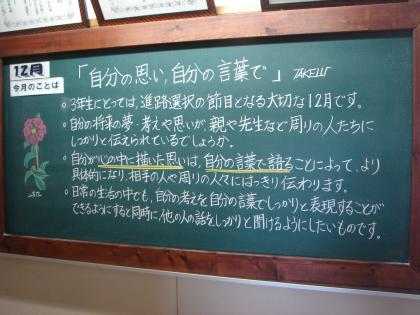 12月
今月のことば
「自分の思い,自分の言葉で」 TAKEUI
○ 3年生にとっては、進路選択の節目となる大切な12月です。
○ 自分の将来の夢・考えや思いが、親や先生など周りの人たちに
しっかりと伝えられているでしょうか。
○ 自分が心の中に描いた思いは、自分の言葉で語ることによって、より
具体的になり、相手の人や周りの人々にはっきり伝わります。
○ 日常の生活の中でも、自分の考えを自分の言葉でしっかりと表現することが
できるようにすると同時に、他の人の話をしっかりと聞けるようにしたいものです。